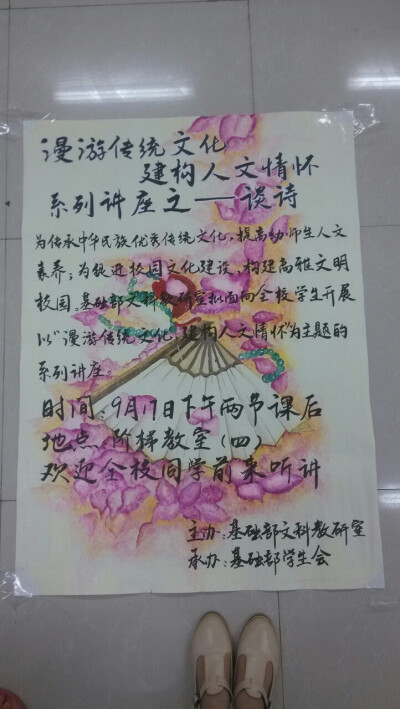 漫游传统文化
建构人文情怀
系列讲座之——谈诗
为传承中华民族优秀传统文化，提高幼师生人文
素养；为促进校园文化建设，构建高雅文明
校园。基础部文科教研室拟面向全校学生开展
以“漫游传统文化，建构人文情怀”为主题的
系列讲座。
时间：9月17日下午两节课后
地点：阶梯教室（四）
欢迎全校同学前来听讲
主办：基础部文科教研室
承办：基础部学生会